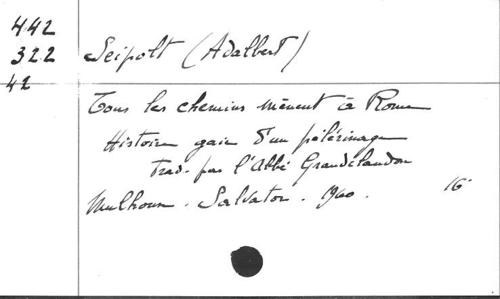 442
322
42
Seipolt (Adalbert)
Tous les chemins mènent à Rome
Histoire gaie d'un pèlerinage
trad. par l'Abbé Grandclaudon
Mulhouse. Salvator. 1960. 16°